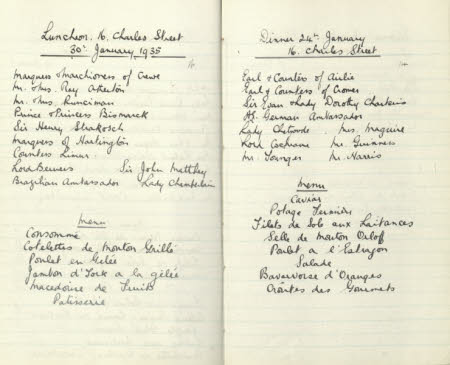 Luncheon. 16. Charles Street
30th January 1935
Marquess & Marchioness of Crewe
Mr. & Mrs. Ray Atherton
Mr. & Mrs. Runciman
Prince & Princess Bismarck
Sir Henry Strakosch
Marquess of Hartington
Countess
Lord Berners Sir John
Brazilian Ambassador Lady Chamberlain
Menu
Consommé
Cotelettes de Mouton Grillé
Poulet en Gelée
Jambon d'York a la gelée
Macedoine de Fruits
Patisserie
Dinner 24th January
16. Charles Street
14
Earl & Countess of Airlie
Earl & Countess of Cromer
Sir Evan & Lady Dorothy Charteris
German Ambassador
Lady Chetwode. Mrs. Maguire
Lord Cochrane Mr. Guinness
Mr. Younger Mr. Harris
Menu
Caviar
Potage
Filets de Sole aux Laitances
Selle de Mouton Orlof
Poulet a l'Estragon
Salade
Bavaroise d'Oranges
Croûtes des Gourmets